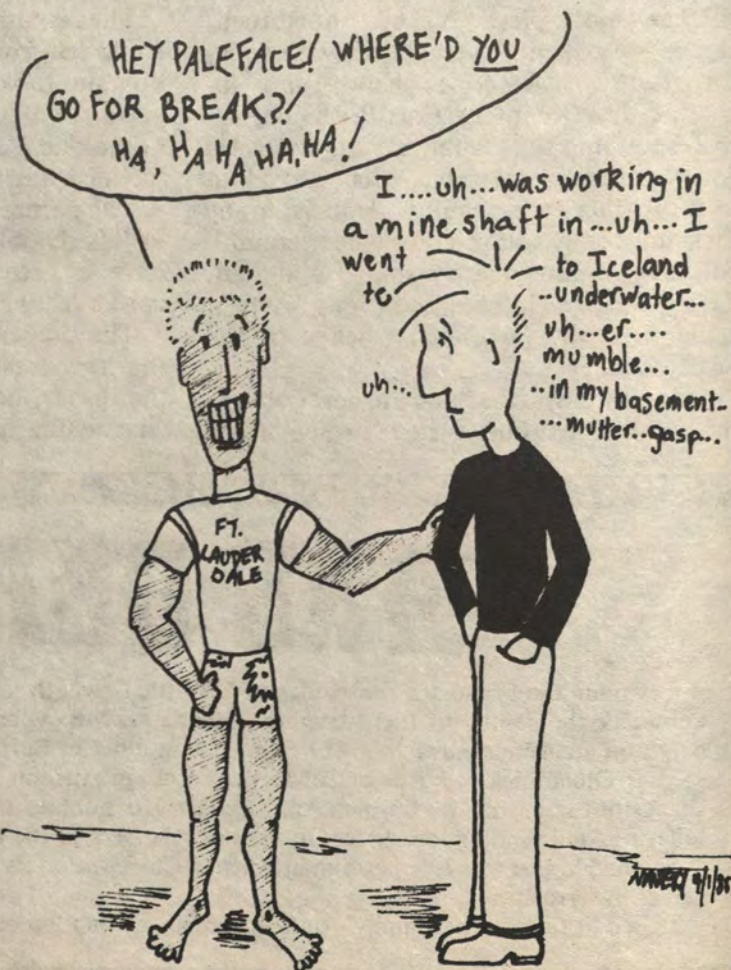 HEY PALEFACE! WHERE'D YOU
GO FOR BREAK?!
HA, HA HA HA, HA!
I....uh...was working in
a mine shaft in...uh...I
went to Iceland
to ..underwater...
uh...er....
mumble...
uh... ..in my basement..
...mutter..gasp...
FT.
LAUDER
DALE